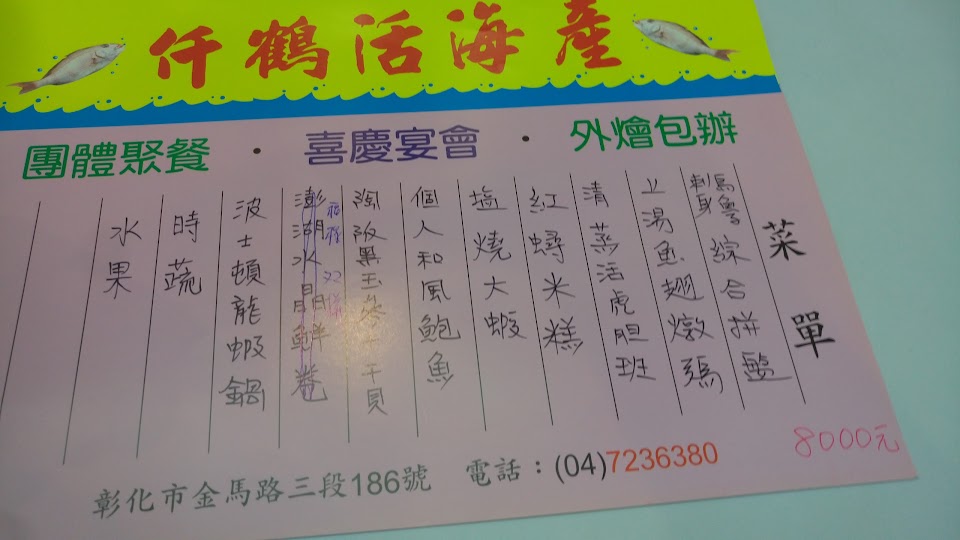 仟鶴活海產
團體聚餐 · 喜慶宴會 · 外燴包辦
菜單
烏魚
刺身綜合拼盤
上湯魚翅燉鴉
清蒸活虎胆班
紅蟳米糕
塩燒大蝦
個人和風鮑魚
陶阪黑玉參干貝
澎湖水晶鮮卷
波士頓龍蝦鍋
時蔬
水果
8000元
彰化市金馬路三段186號 電話:(04)7236380